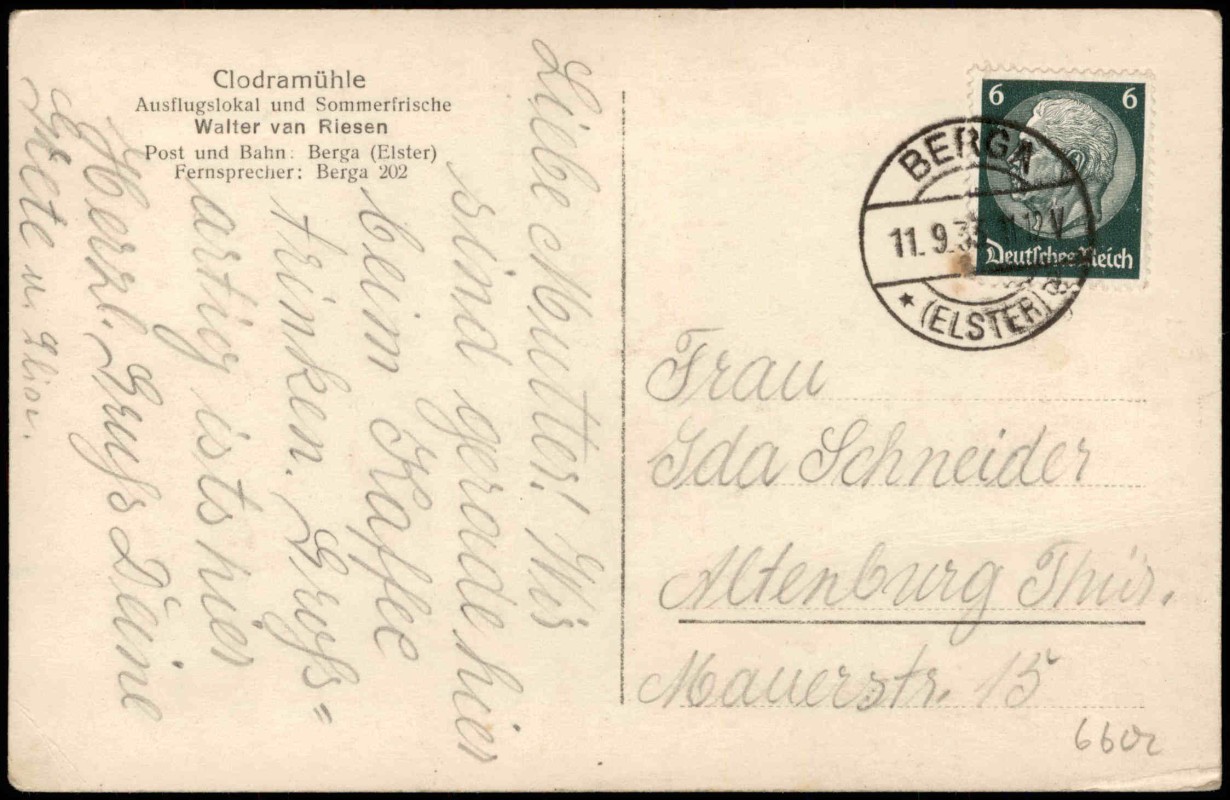 Clodramühle
Ausflugslokal und Sommerfrische
Walter van Riesen
Post und Bahn: Berga (Elster)
Fernsprecher: Berga 202
Liebe Mutter! Wir
sind gerade hier
beim Kaffee
trinken. Gross=
artig ists hier
Herzl. Gruss Deine
Grete u.
6 6
Deutsches Reich
BERGA
11.9.3 11-12 V
(ELSTER)
Frau
Ida Schneider
Altenburg Thür.
Mauerstr. 15